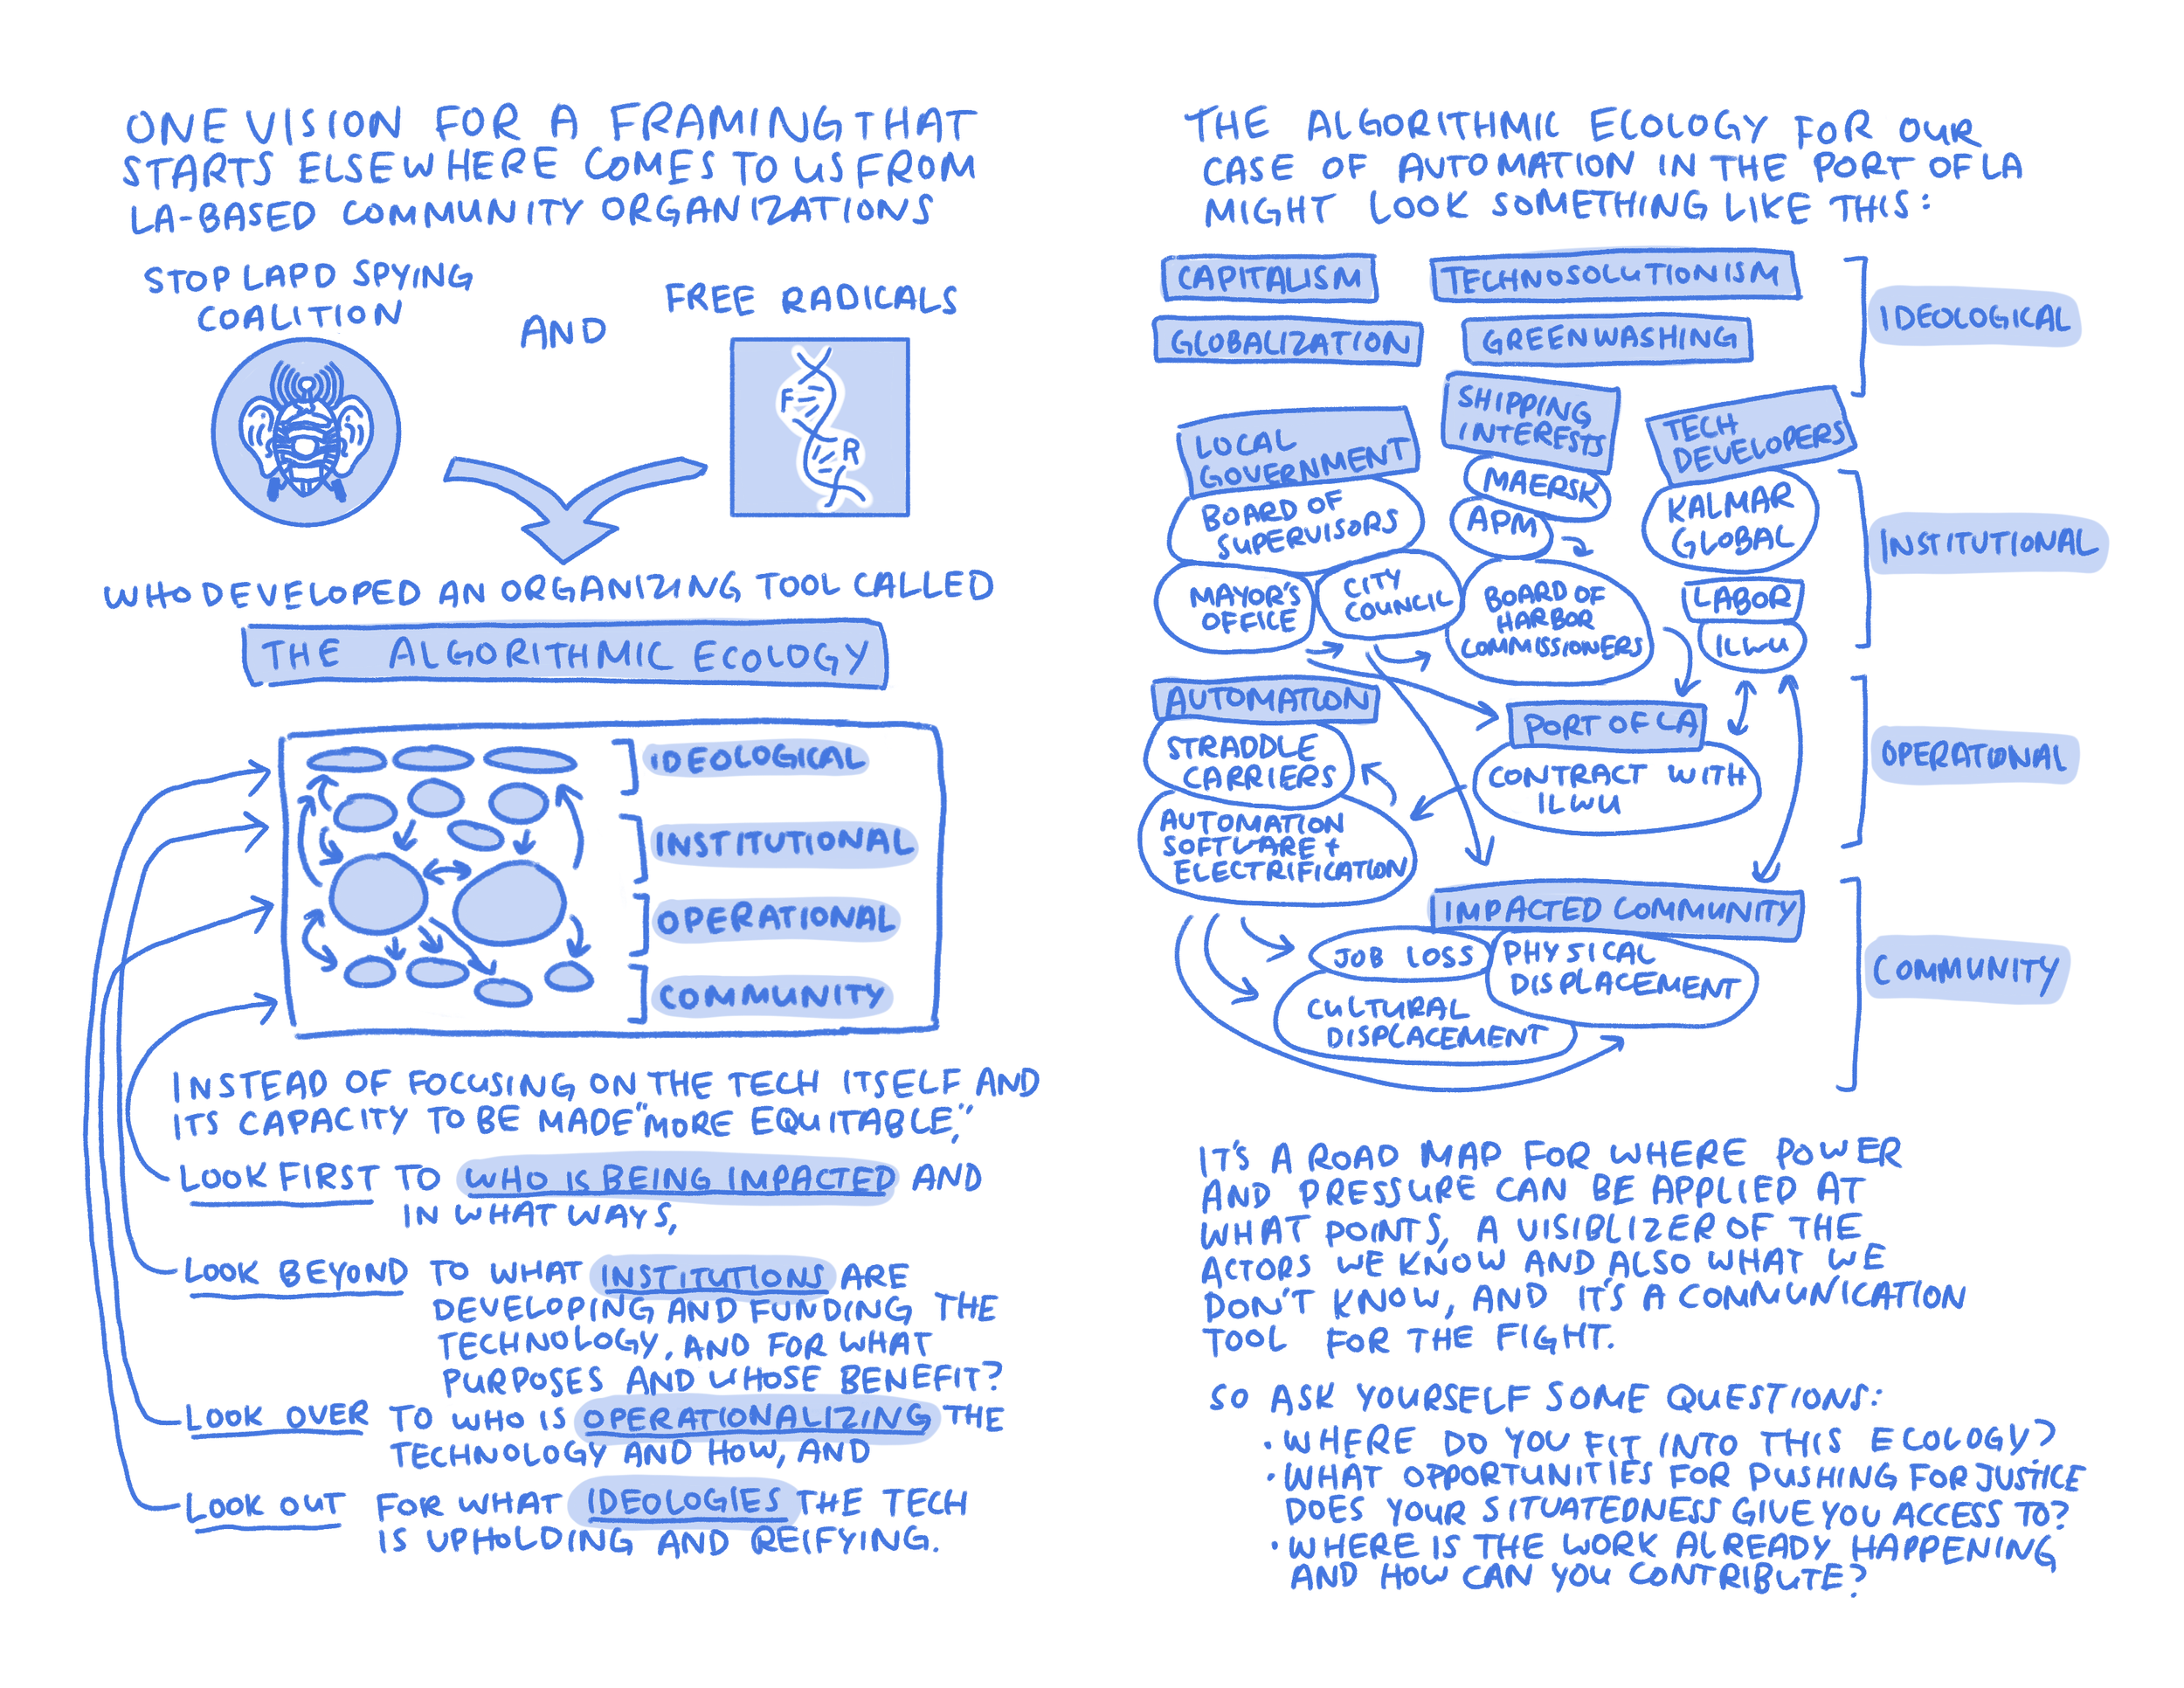 ONE VISION FOR A FRAMING THAT
STARTS ELSEWHERE COMES TO US FROM
LA-BASED COMMUNITY ORGANIZATIONS
STOP LAPD SPYING
COALITION
AND
FREE RADICALS
F
R
WHO DEVELOPED AN ORGANIZING TOOL CALLED
THE ALGORITHMIC ECOLOGY
IDEOLOGICAL
INSTITUTIONAL
OPERATIONAL
COMMUNITY
INSTEAD OF FOCUSING ON THE TECH ITSELF AND
ITS CAPACITY TO BE MADE "MORE EQUITABLE,"
LOOK FIRST TO WHO IS BEING IMPACTED AND
IN WHAT WAYS,
LOOK BEYOND TO WHAT INSTITUTIONS ARE
DEVELOPING AND FUNDING THE
TECHNOLOGY, AND FOR WHAT
PURPOSES AND WHOSE BENEFIT?
LOOK OVER TO WHO IS OPERATIONALIZING THE
TECHNOLOGY AND HOW, AND
LOOK OUT FOR WHAT IDEOLOGIES THE TECH
IS UPHOLDING AND REIFYING.
THE ALGORITHMIC ECOLOGY FOR OUR
CASE OF AUTOMATION IN THE PORT OF LA
MIGHT LOOK SOMETHING LIKE THIS:
CAPITALISM
TECHNOSOLUTIONISM
GLOBALIZATION
GREENWASHING
IDEOLOGICAL
LOCAL
GOVERNMENT
BOARD OF
SUPERVISORS
MAYOR'S
OFFICE
CITY
COUNCIL
SHIPPING
INTERESTS
MAERSK
APM
BOARD OF
HARBOR
COMMISSIONERS
TECH
DEVELOPERS
KALMAR
GLOBAL
LABOR
ILWU
INSTITUTIONAL
AUTOMATION
STRADDLE
CARRIERS
AUTOMATION
SOFTWARE +
ELECTRIFICATION
PORT OF LA
CONTRACT WITH
ILWU
OPERATIONAL
IMPACTED COMMUNITY
JOB LOSS
PHYSICAL
DISPLACEMENT
CULTURAL
DISPLACEMENT
COMMUNITY
IT'S A ROAD MAP FOR WHERE POWER
AND PRESSURE CAN BE APPLIED AT
WHAT POINTS, A VISIBLIZER OF THE
ACTORS WE KNOW AND ALSO WHAT WE
DON'T KNOW, AND IT'S A COMMUNICATION
TOOL FOR THE FIGHT.
SO ASK YOURSELF SOME QUESTIONS:
• WHERE DO YOU FIT INTO THIS ECOLOGY?
• WHAT OPPORTUNITIES FOR PUSHING FOR JUSTICE
DOES YOUR SITUATEDNESS GIVE YOU ACCESS TO?
• WHERE IS THE WORK ALREADY HAPPENING
AND HOW CAN YOU CONTRIBUTE?